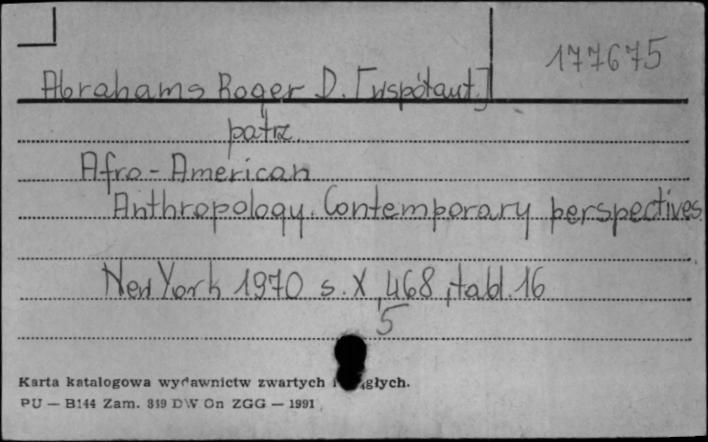 177675
Abrahams Roger D. [współaut.]
patrz
Afro-American
Anthropology. Contemporary perspectives
New York 1970 s. X, 468, tabl. 16
5
Karta katalogowa wydawnictw zwartych i ciągłych.
PU — B144 Zam. 819 DW On ZGG — 1991